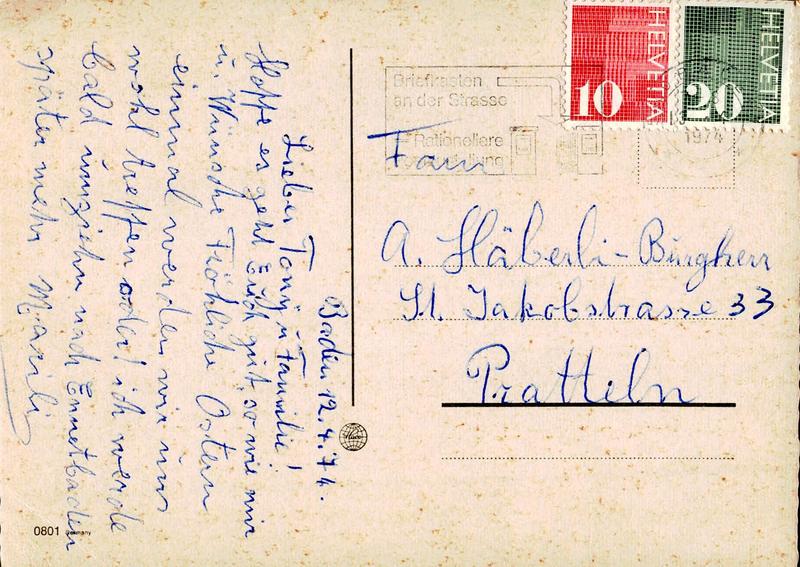 Baden 12.4.74.
Lieber Tony u. Familie!
Hoffe es geht Euch gut, so wie mir
u. Wünsche Fröhliche Ostern
einmal werden wir uns
wohl treffen oder! ich werde
bald umziehn nach Ennetbaden
später mehr Marili
0801 Germany
HELVETIA
10
HELVETIA
20
Briefkasten
an der Strasse
Rationellere
1974
Fam
A. Häberli-Burgherr
St. Jakobstrasse 33
Pratteln